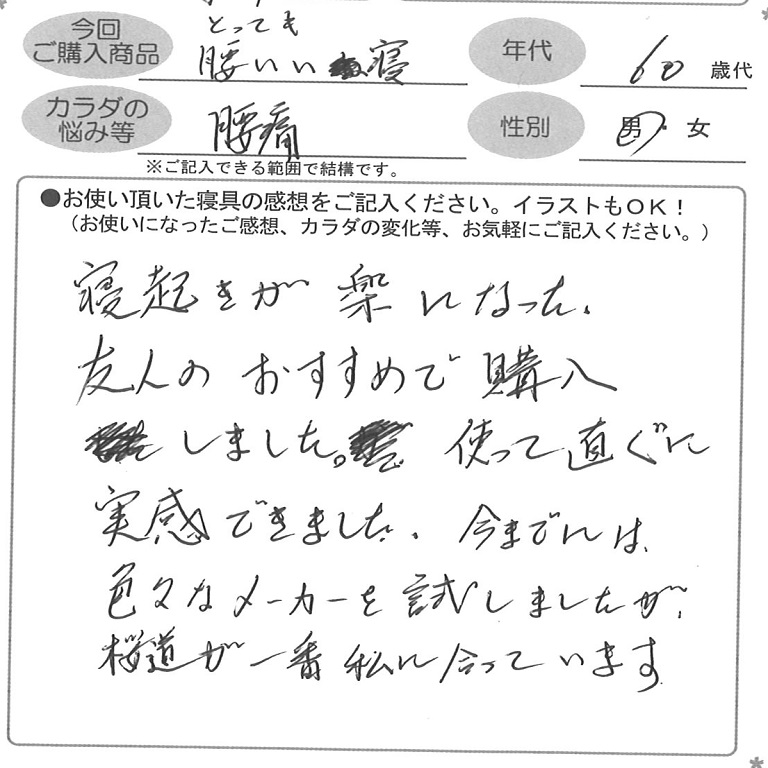 今回
ご購入商品
とっても
腰いい寝
年代
60 歳代
カラダの
悩み等
腰痛
性別
男・女
※ご記入できる範囲で結構です。
●お使い頂いた寝具の感想をご記入ください。イラストもOK！
（お使いになったご感想、カラダの変化等、お気軽にご記入ください。）
寝起きが楽になった、
友人のおすすめで購入
しました。使って直ぐに
実感できました、今までには、
色々なメーカーを試しましたが、
桜道が一番私に合っています